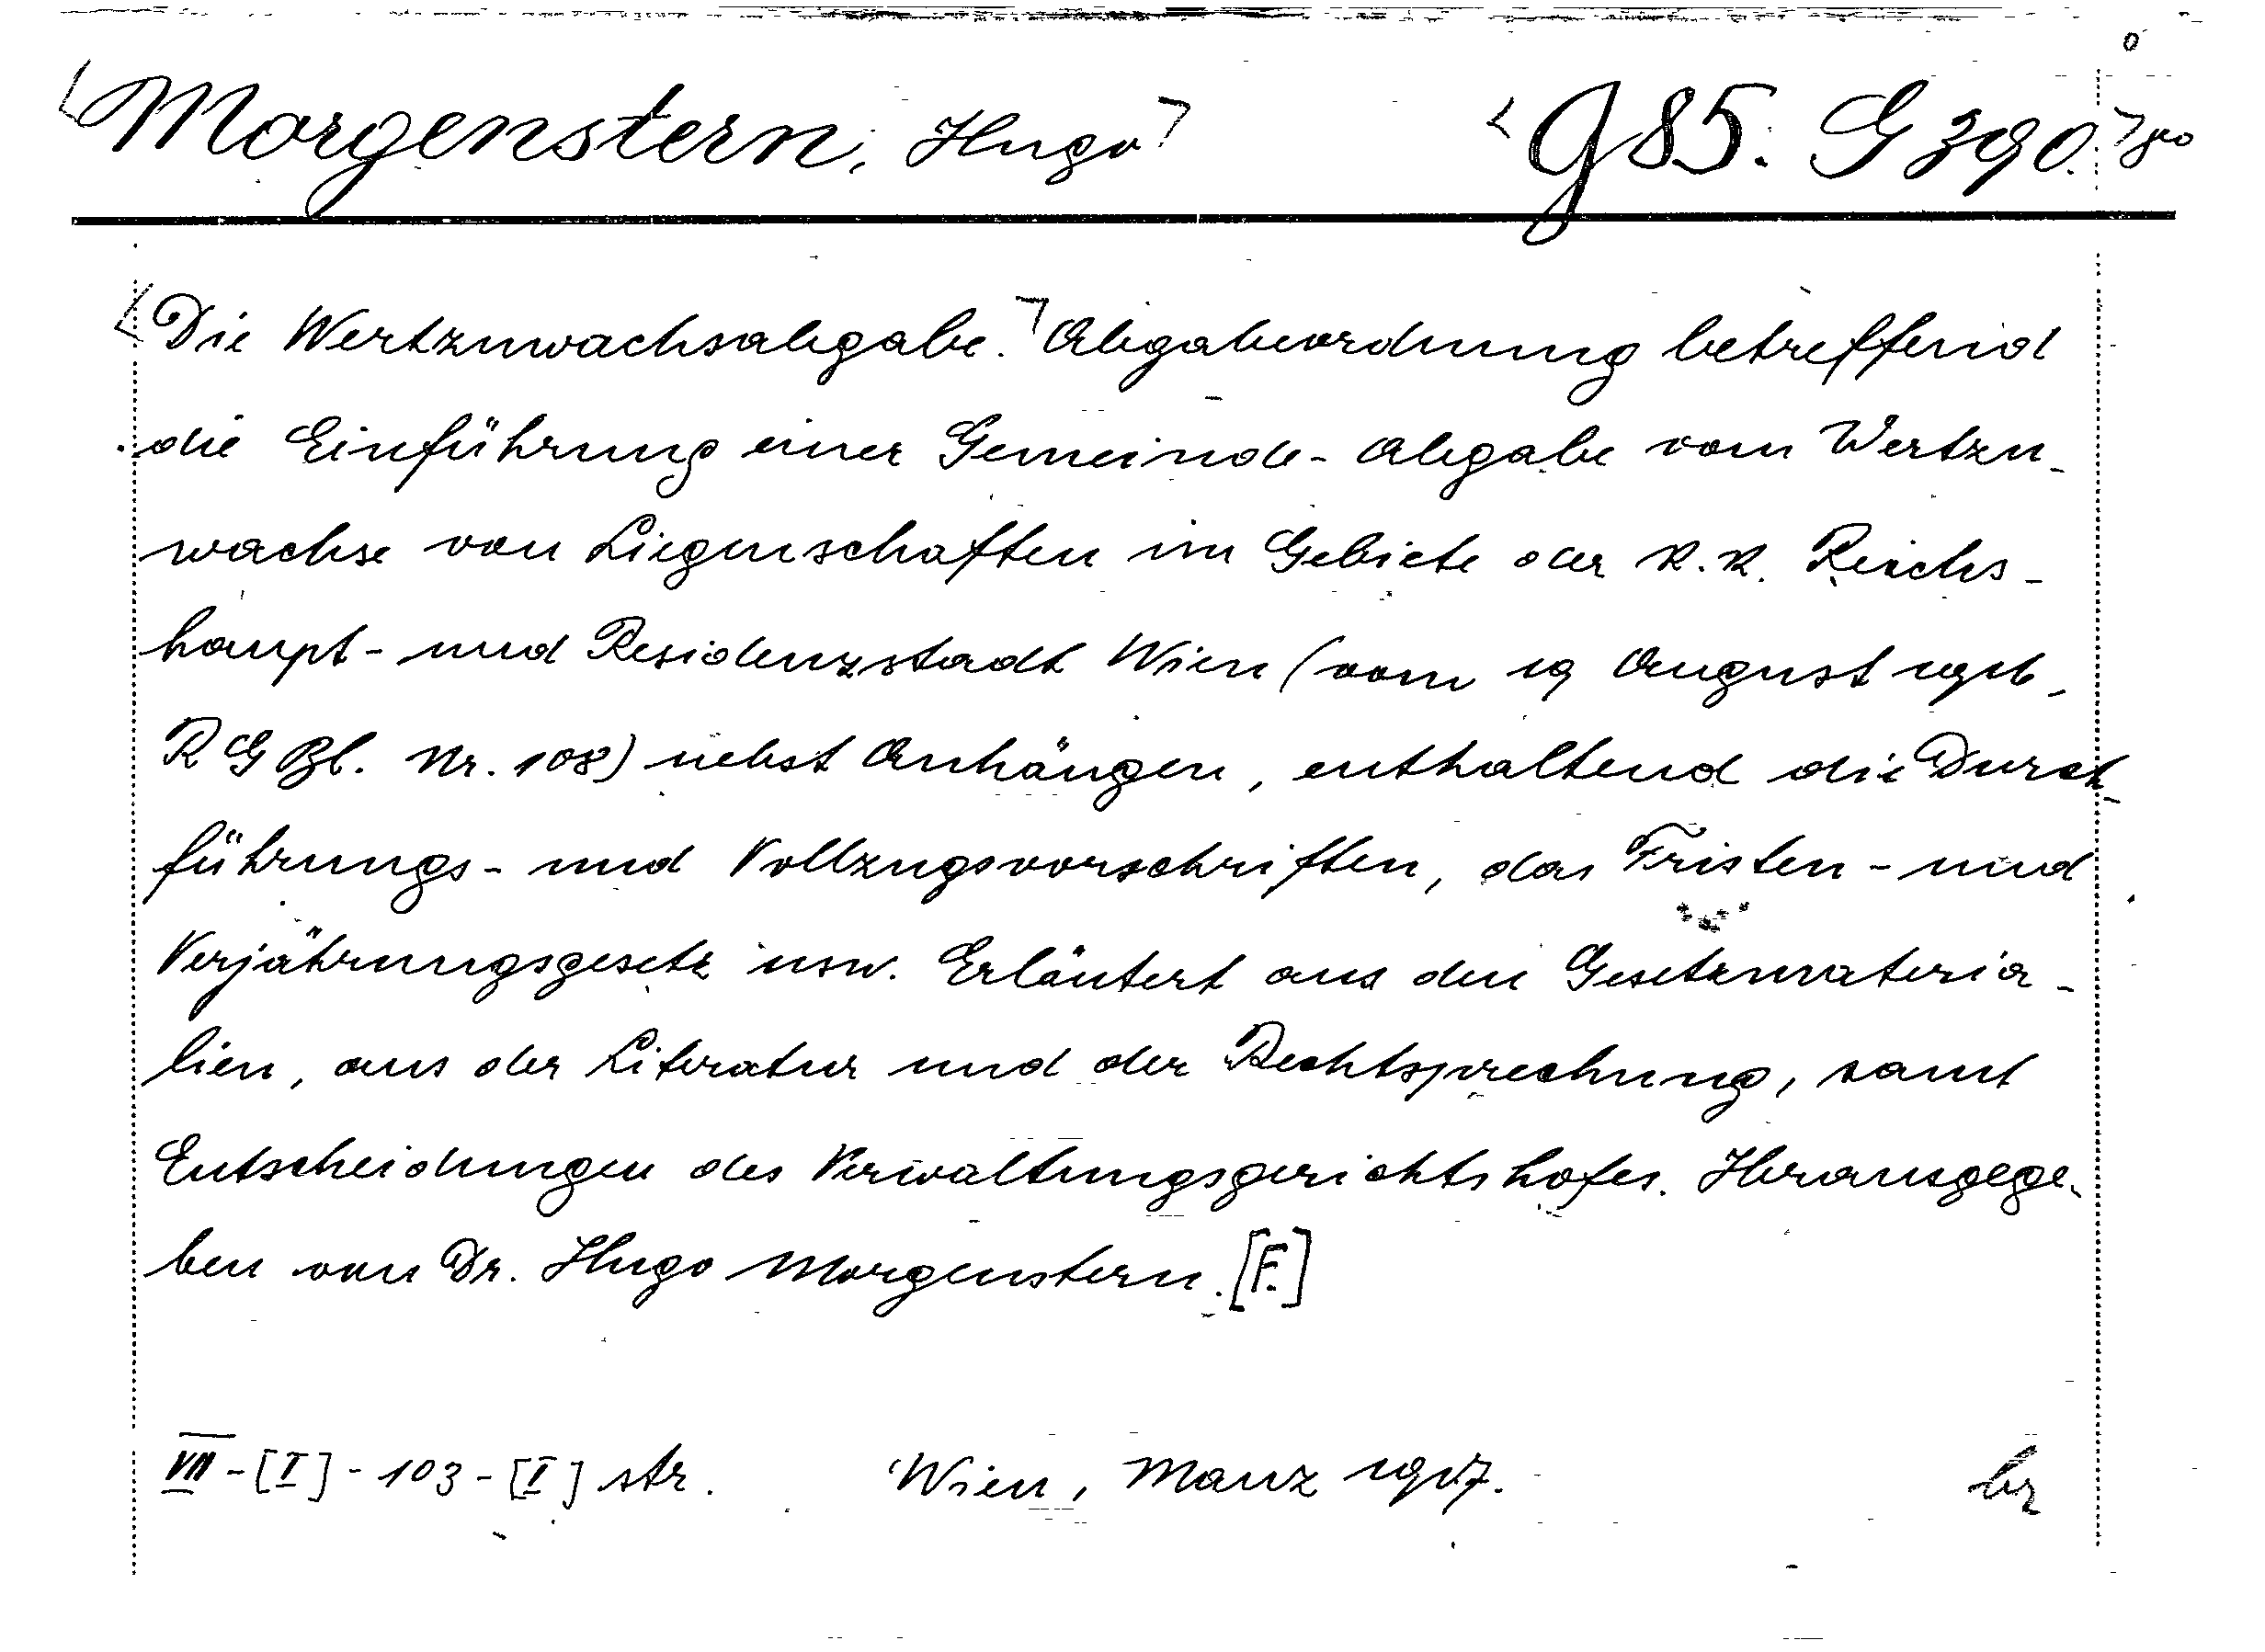 Morgenstern, Hugo g85. G390.
Die Wertzuwachsabgabe. Abgabeordnung betreffend
die Einführung einer Gemeinde-Abgabe vom Wertzu-
wachse von Liegenschaften im Gebiete der k.k. Reichs-
haupt- und Residenzstadt Wien (vom 19 August 1916,
RGBl. Nr. 108) nebst Anhängen, enthaltend die Durch-
führungs- und Vollzugsvorschriften, das Fristen- und
Verjährungsgesetz usw. Erläutert aus den Gesetzmateria-
lien, aus der Literatur und der Rechtsprechung, samt
Entscheidungen des Verwaltungsgerichtshofes. Herausgege-
ben von Dr. Hugo Morgenstern. [F.]
VIII-[I]-103-[I] str. Wien, Manz 1917. br